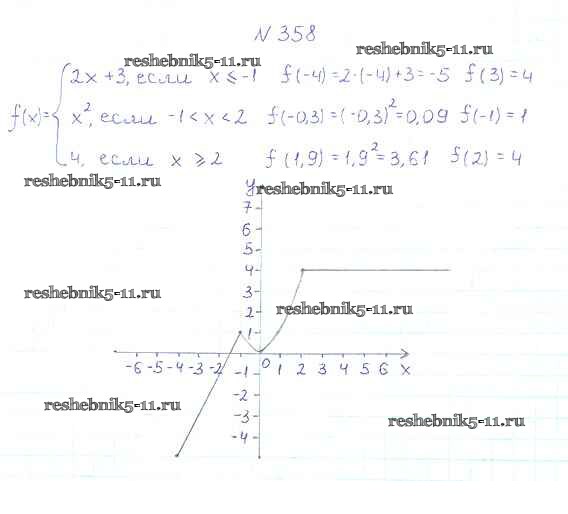 N 358
reshebnik5-11.ru
reshebnik5-11.ru
2x + 3, если x ≤ -1 f(-4) = 2·(-4) + 3 = -5 f(3) = 4
f(x) = { x², если -1 < x < 2 f(-0,3) = (-0,3)² = 0,09 f(-1) = 1
4, если x ⩾ 2 f(1,9) = 1,9² = 3,61 f(2) = 4
reshebnik5-11.ru
y
reshebnik5-11.ru
7
6
5
4
3
reshebnik5-11.ru
2
reshebnik5-11.ru
1
-6 -5 -4 -3 -2 0 1 2 3 4 5 6 x
-1
-2
-3
reshebnik5-11.ru
-4
reshebnik5-11.ru